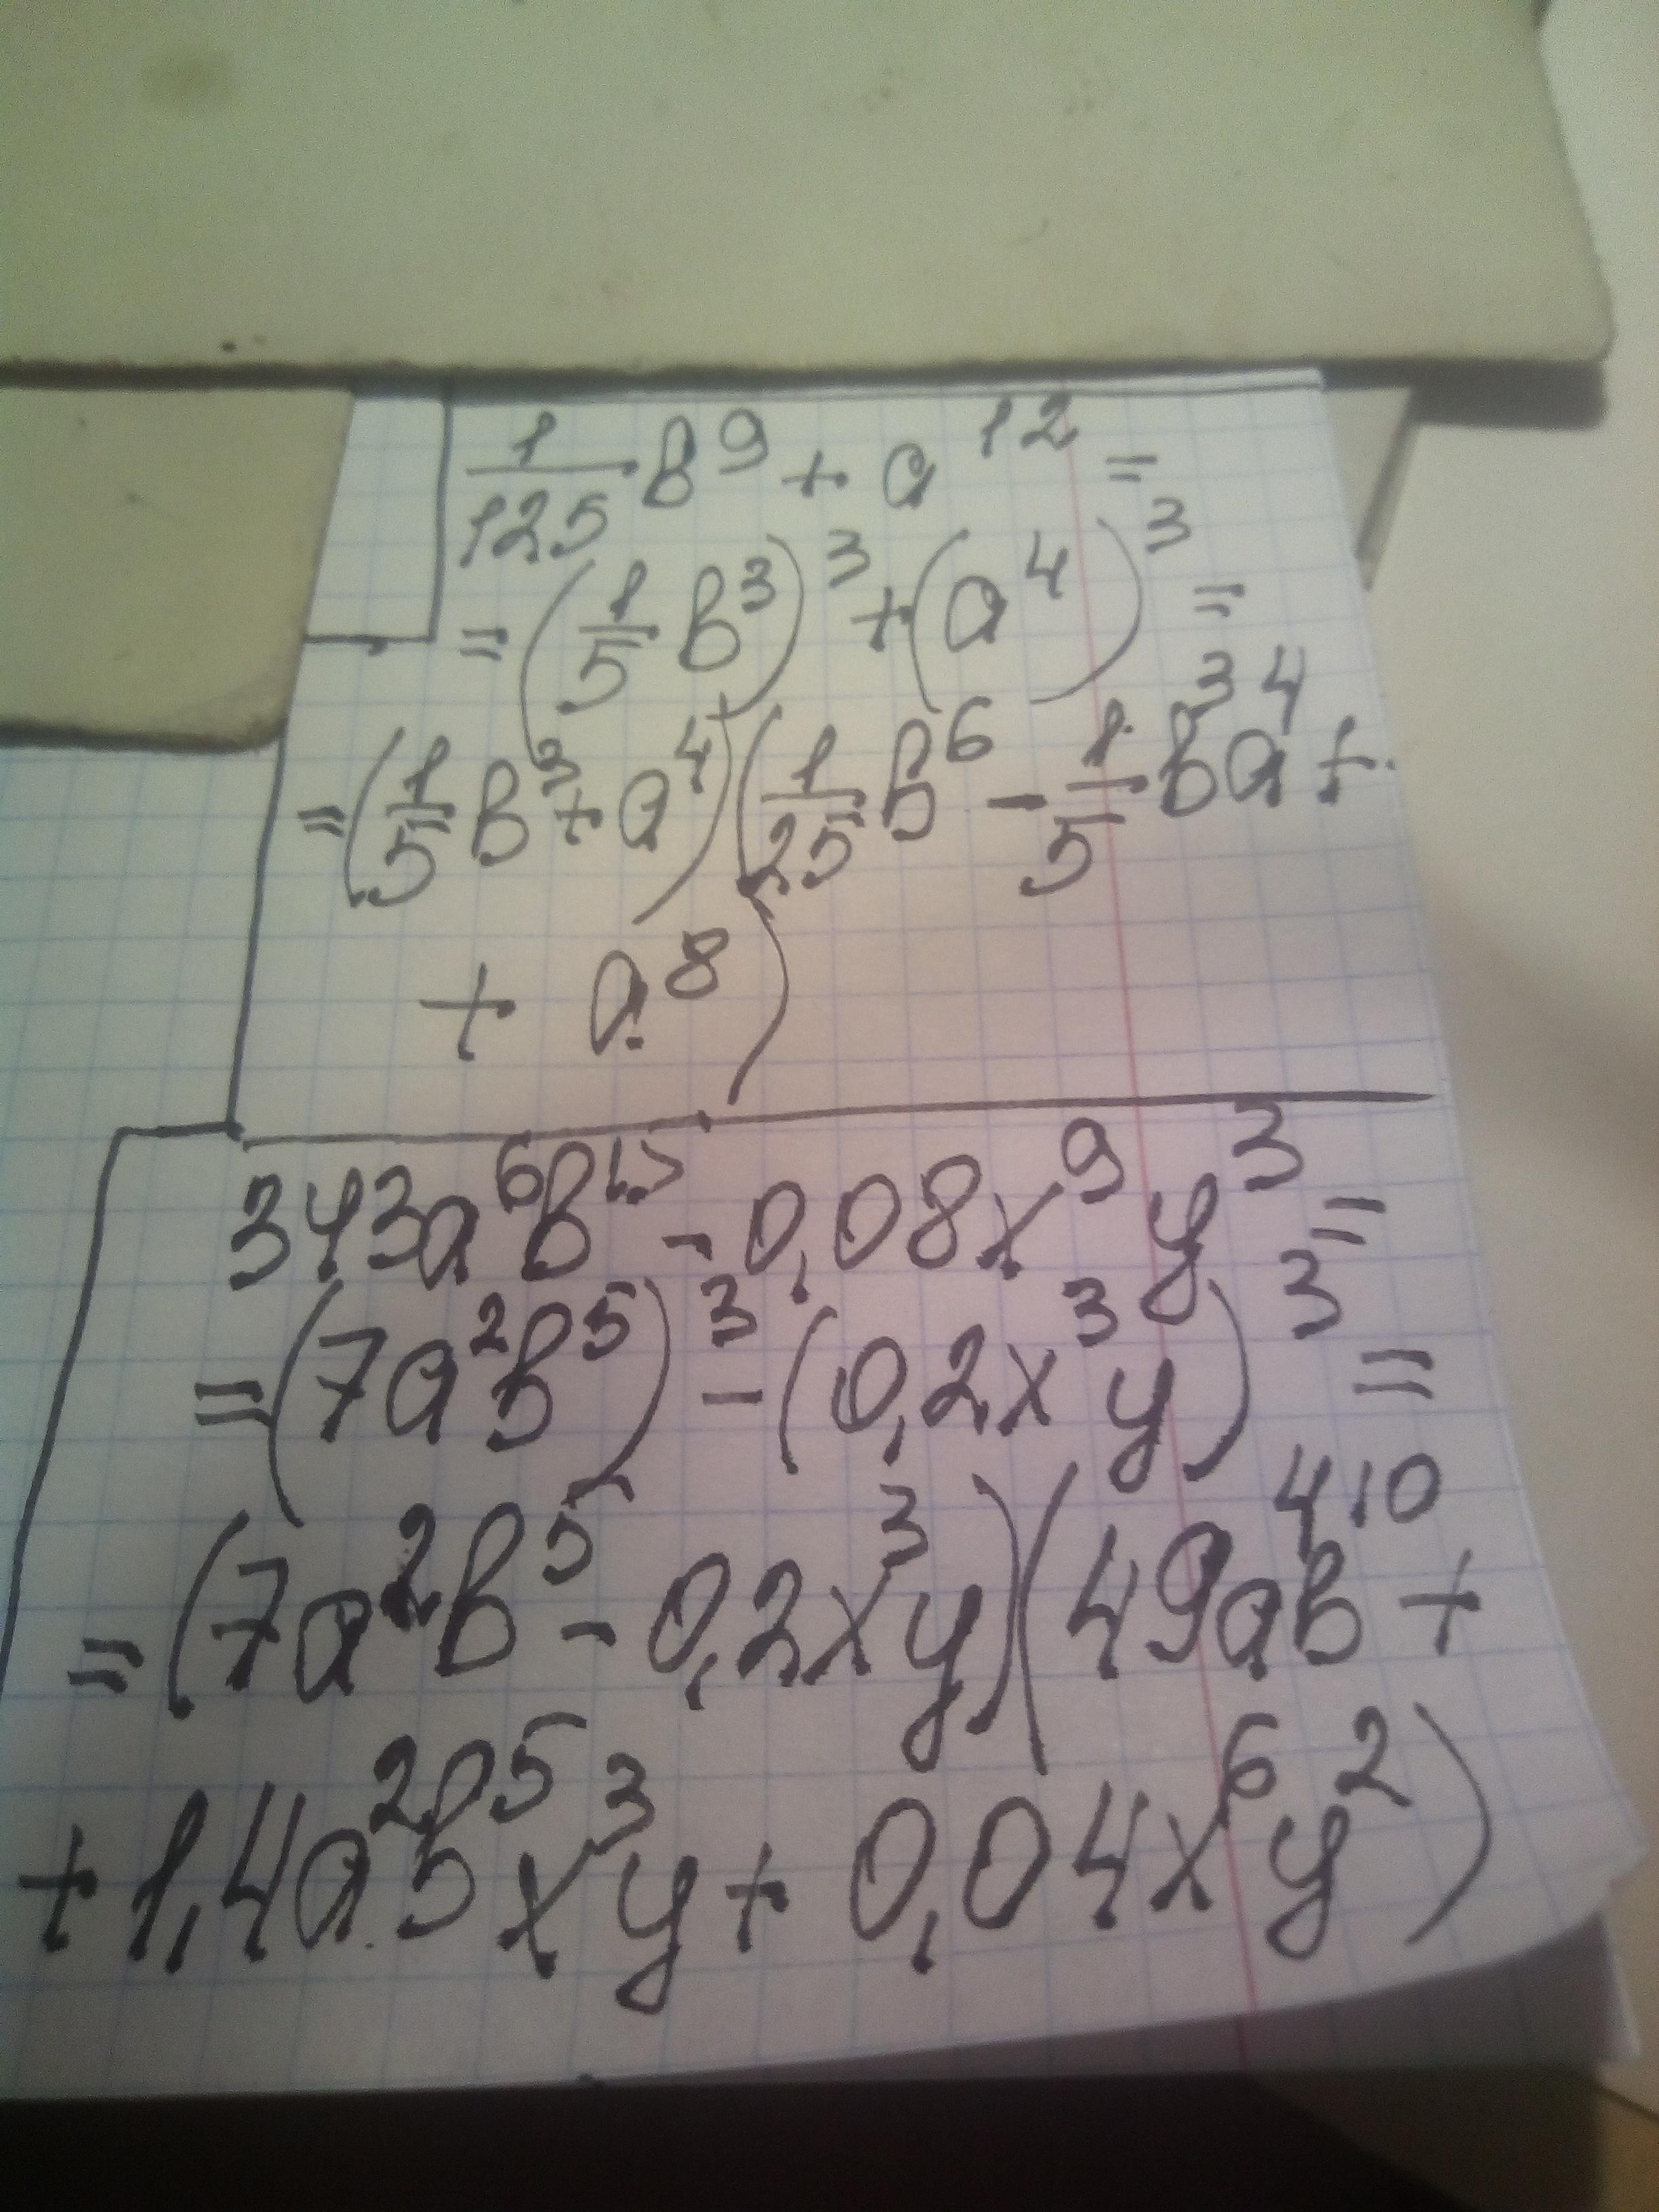 1/125 b⁹ + a¹² =
= (1/5 b³)³ + (a⁴)³ =
= (1/5 b³ + a⁴)(1/25 b⁶ - 1/5 b³a⁴ +
+ a⁸)
343a⁶b¹⁵ - 0,08x⁹y³ =
= (7a²b⁵)³ - (0,2x³y)³ =
= (7a²b⁵ - 0,2x³y)(49a⁴b¹⁰ +
+ 1,4a²b⁵x³y + 0,04x⁶y²)